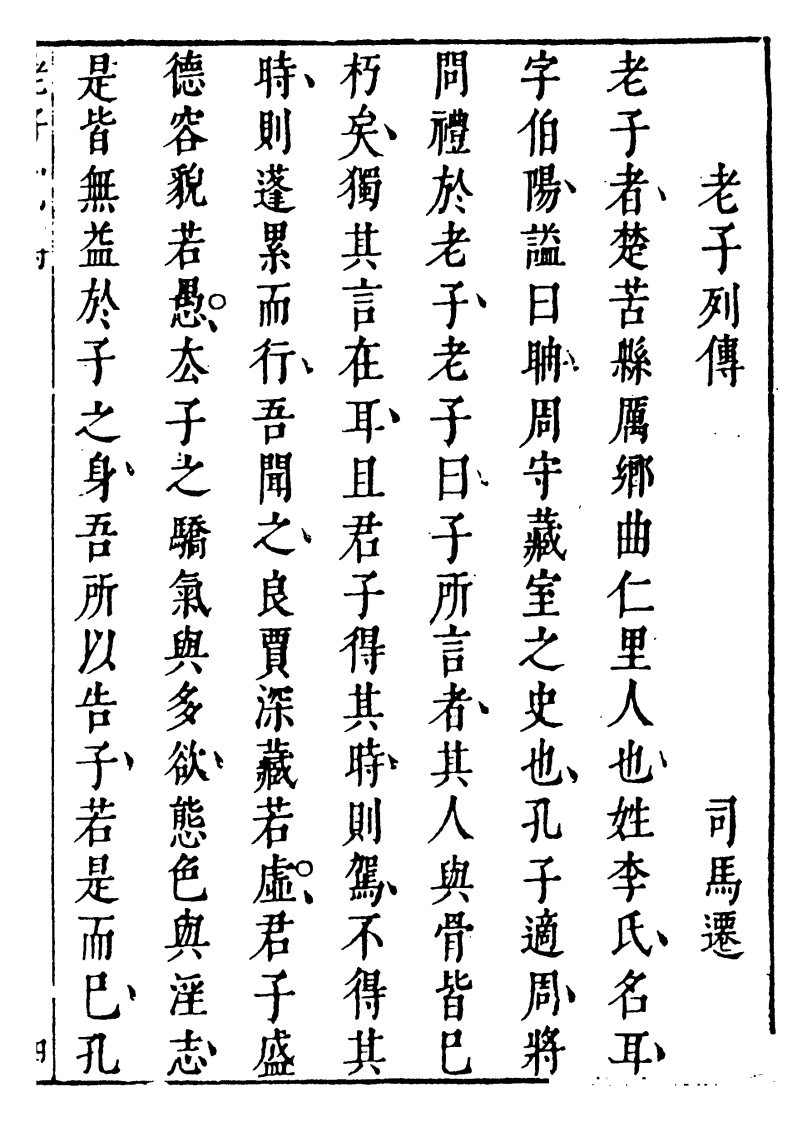 老子列傳　司馬遷
老子者、楚苦縣厲鄉曲仁里人也、姓李氏、名耳、
字伯陽、謚曰聃、周守藏室之史也、孔子適周、將
問禮於老子、老子曰、子所言者、其人與骨皆已
朽矣、獨其言在耳、且君子得其時、則駕、不得其
時、則蓬累而行、吾聞之、良賈深藏若虛。君子盛
德容貌若愚。去子之驕氣與多欲、態色與淫志、
是皆無益於子之身、吾所以告子、若是而已、孔